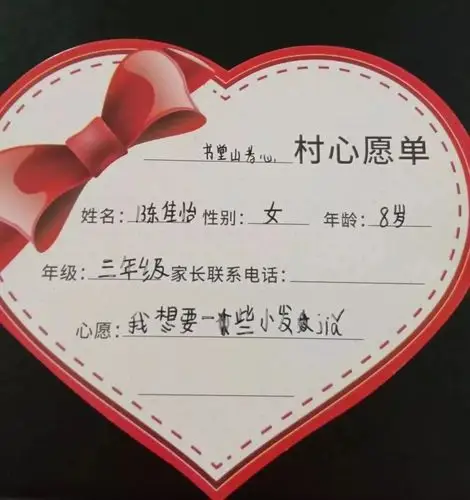 书堂山 村心愿单
姓名：陈佳怡 性别：女 年龄：8岁
年级：三年级 家长联系电话：
心愿：我想要一些小发jiá